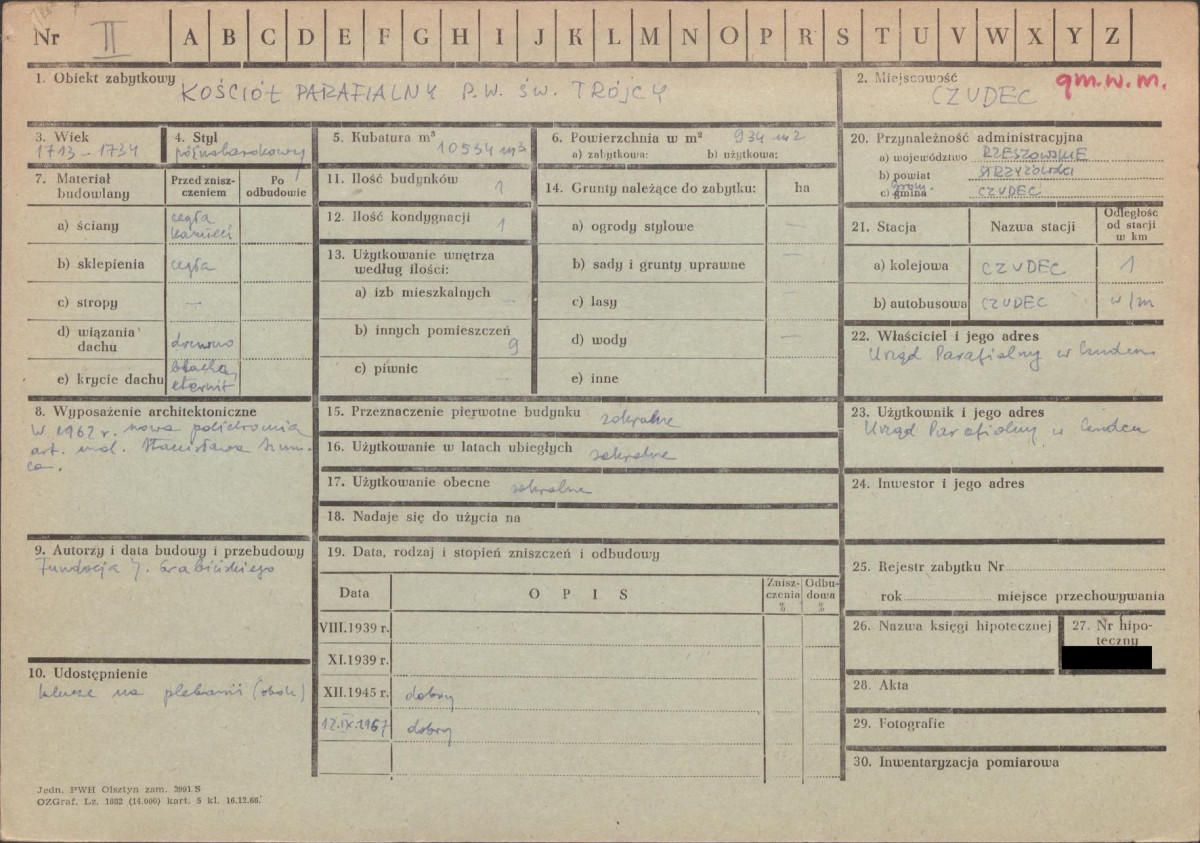 Nr II A B C D E F G H I J K L M N O P R S T U V W X Y Z
1. Obiekt zabytkowy KOŚCIÓŁ PARAFIALNY P.W. ŚW. TRÓJCY
2. Miejscowość CZUDEC gm.w.m.
3. Wiek
1713 - 1734
4. Styl
późnobarokowy
5. Kubatura m³
10534 m3
6. Powierzchnia w m² 934 m2
a) zabytkowa: b) użytkowa:
7. Materiał budowlany
Przed zniszczeniem
Po odbudowie
a) ściany cegła
kamień
b) sklepienia cegła
c) stropy —
d) wiązania dachu drewno
e) krycie dachu blacha,
eternit
8. Wyposażenie architektoniczne
W 1962 r. nowa polichromia
art. mal. Stanisława
9. Autorzy i data budowy i przebudowy
Fundacja J. Grabińskiego
10. Udostępnienie
klucze na plebanii (obok)
11. Ilość budynków 1
12. Ilość kondygnacji 1
13. Użytkowanie wnętrza
według ilości:
a) izb mieszkalnych —
b) innych pomieszczeń
9
c) piwnic —
14. Grunty należące do zabytku: ha
a) ogrody stylowe —
b) sady i grunty uprawne —
c) lasy —
d) wody —
e) inne
15. Przeznaczenie pierwotne budynku sakralne
16. Użytkowanie w latach ubiegłych sakralne
17. Użytkowanie obecne sakralne
18. Nadaje się do użycia na
19. Data, rodzaj i stopień zniszczeń i odbudowy
Data O P I S Zniszczenia % Odbudowa %
VIII.1939 r.
XI.1939 r.
XII.1945 r. dobry
12.IX.1967 dobry
20. Przynależność administracyjna
a) województwo RZESZOWSKIE
b) powiat STRZYŻOWSKI
grom.
c) gmina CZUDEC
21. Stacja Nazwa stacji Odległość od stacji w km
a) kolejowa CZUDEC 1
b) autobusowa CZUDEC w/m
22. Właściciel i jego adres
Urząd Parafialny w Czudcu
23. Użytkownik i jego adres
Urząd Parafialny w Czudcu
24. Inwestor i jego adres
25. Rejestr zabytku Nr
rok miejsce przechowywania
26. Nazwa księgi hipotecznej
27. Nr hipo-
teczny
28. Akta
29. Fotografie
30. Inwentaryzacja pomiarowa
Jedn. PWH Olsztyn zam. 3991 S
OZGraf. Lz. 1882 (14.000) kart. 5 kl. 16.12.66.